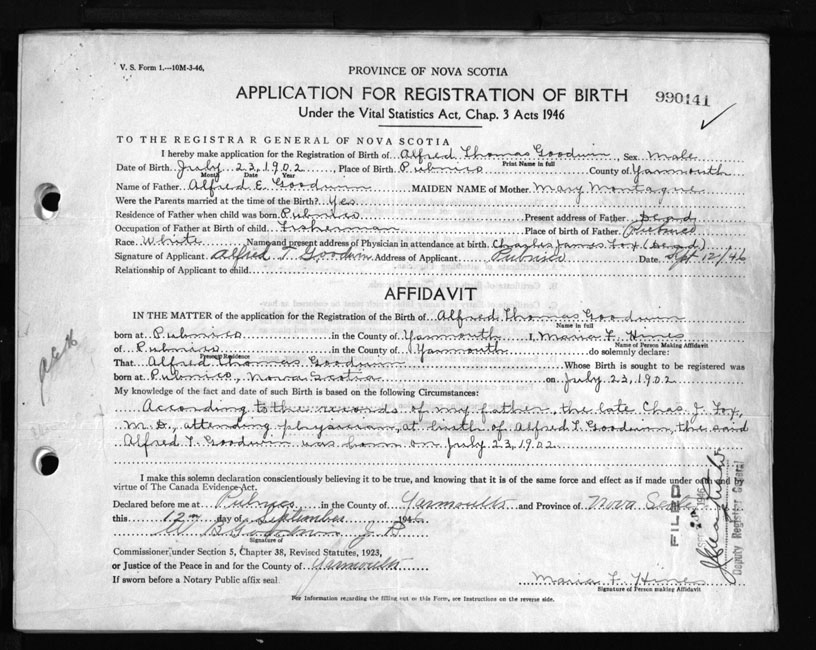 V. S. Form 1.—10M-3-46,
PROVINCE OF NOVA SCOTIA
APPLICATION FOR REGISTRATION OF BIRTH
990141
Under the Vital Statistics Act, Chap. 3 Acts 1946
TO THE REGISTRAR GENERAL OF NOVA SCOTIA
I hereby make application for the Registration of Birth of Alfred Thomas Goodwin, Sex Male
Print Name in full
Date of Birth July 23, 1902, Place of Birth Pubnico County of Yarmouth
Month Date Year
Name of Father Alfred E. Goodwin MAIDEN NAME of Mother Mary Montague
Were the Parents married at the time of the Birth? Yes
Residence of Father when child was born Pubnico Present address of Father Dead
Occupation of Father at Birth of child Fisherman Place of birth of Father Pubnico
Race White Name and present address of Physician in attendance at birth Charles James Fox (dead)
Signature of Applicant Alfred T. Goodwin Address of Applicant Pubnico Date Sept 12/46
Relationship of Applicant to child
AFFIDAVIT
IN THE MATTER of the application for the Registration of Birth of Alfred Thomas Goodwin
Name in full
born at Pubnico in the County of Yarmouth I, Maria F. Hines
Name of Person Making Affidavit
of Pubnico in the County of Yarmouth do solemnly declare:
Present Residence
That Alfred Thomas Goodwin Whose Birth is sought to be registered was
born at Pubnico, Nova Scotia on July 23, 1902
My knowledge of the fact and date of such Birth is based on the following Circumstances:
According to the records of my father, the late Chas. J. Fox,
M.D., attending physician, at birth of Alfred T. Goodwin, the said
Alfred T. Goodwin was born on July 23, 1902
I make this solemn declaration conscientiously believing it to be true, and knowing that it is of the same force and effect as if made under oath and by
virtue of The Canada Evidence Act.
Declared before me at Pubnico in the County of Yarmouth and Province of Nova Scotia
this 12th day of September 1946
J P
Signature of
Commissioner under Section 5, Chapter 38, Revised Statutes, 1923,
or Justice of the Peace in and for the County of Yarmouth
If sworn before a Notary Public affix seal
Maria F. Hines
Signature of Person making Affidavit
For Information regarding the filling out of this Form, see Instructions on the reverse side.
FILED
Deputy Registrar General